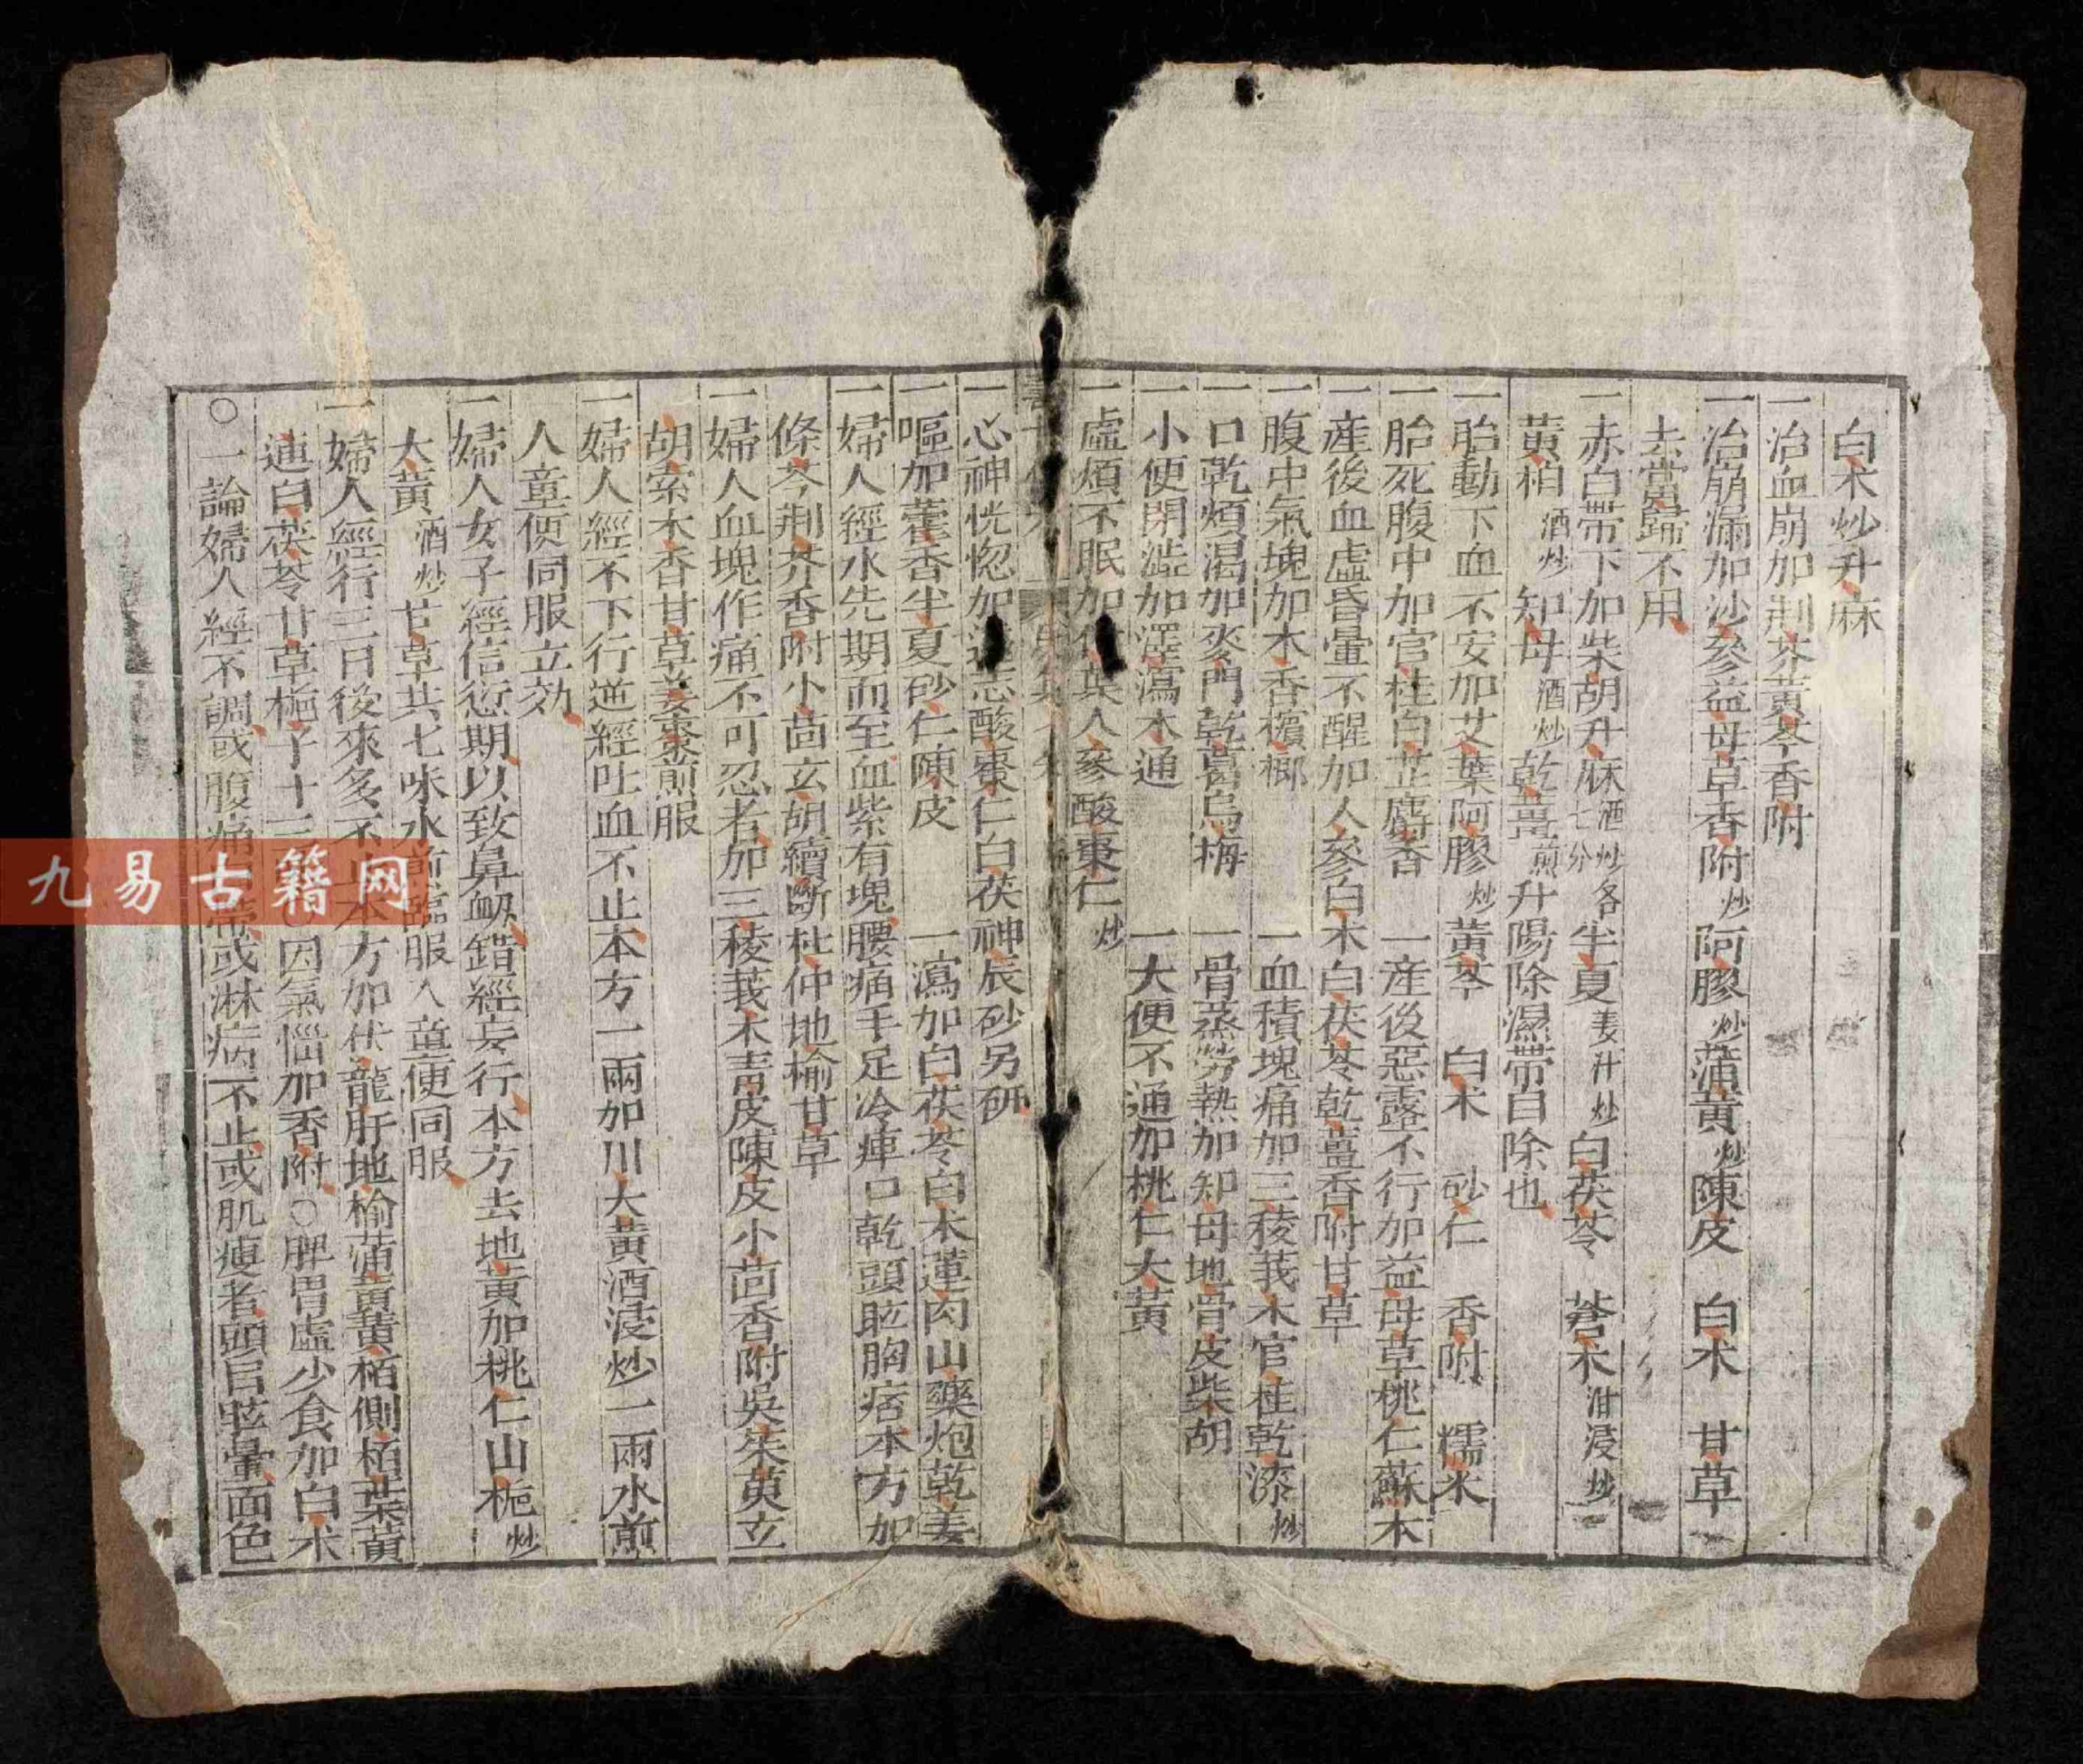 白术炒升麻
一治血崩加荊芥黃芩香附
一治崩漏加沙參益母草香附炒阿膠炒蒲黃炒陳皮 白术 甘草
去當歸不用
一赤白帶下加柴胡升麻酒炒各七分半夏姜汁炒白茯苓 蒼术泔浸炒
黃柏酒炒知母酒炒乾薑煎升陽除濕帶自除也
一胎動下血不安加艾葉阿膠炒黃芩 白术 砂仁 香附 糯米
一胎死腹中加官桂白芷麝香 一産後惡露不行加益母草桃仁蘇木
一産後血虛昏暈不醒加人參白术白茯苓乾薑香附甘草
一腹中氣塊加木香檳榔 一血積塊痛加三稜莪术官桂乾漆炒
一口乾煩渴加麥門乾葛烏梅 一骨蒸勞熱加知母地骨皮柴胡
一小便閉澁加澤瀉木通 一大便不通加桃仁大黃
一虛煩不眠加 葉人參酸棗仁炒
一心神恍惚加遠志酸棗仁白茯神辰砂另研
一嘔加藿香半夏砂仁陳皮 一瀉加白茯苓白术蓮肉山藥炮乾姜
一婦人經水先期而至血紫有塊腰痛手足冷痺口乾頭眩胸痞本方加
條芩荆芥香附小茴玄胡續斷杜仲地榆甘草
一婦人血塊作痛不可忍者加三稜莪术青皮陳皮小茴香附吳茱萸玄
胡索木香甘草姜棗煎服
一婦人經不下行逆經吐血不止本方一兩加川大黃酒浸炒一兩水煎
人童便同服立効
一婦人女子經信愆期以致鼻衂錯經妄行本方去地黃加桃仁山梔炒
大黃酒炒甘草共七味水煎臨服入童便同服
一婦人經行三日後來多不止本方加伏龍肝地榆蒲黃黃栢側栢葉黃
連白茯苓甘草梔子十三 因氣惱加香附○脾胃虛少食加白术
○一論婦人經不調或腹痛 帶或淋病不止或肌瘦者頭目眩暈面色
九易古籍网